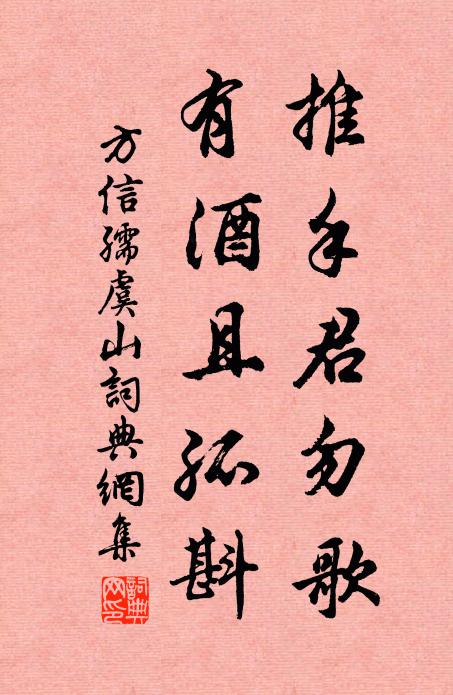 推手君勿歌
有酒且孤斟
方信孺虞山詞典網集
詞典網印